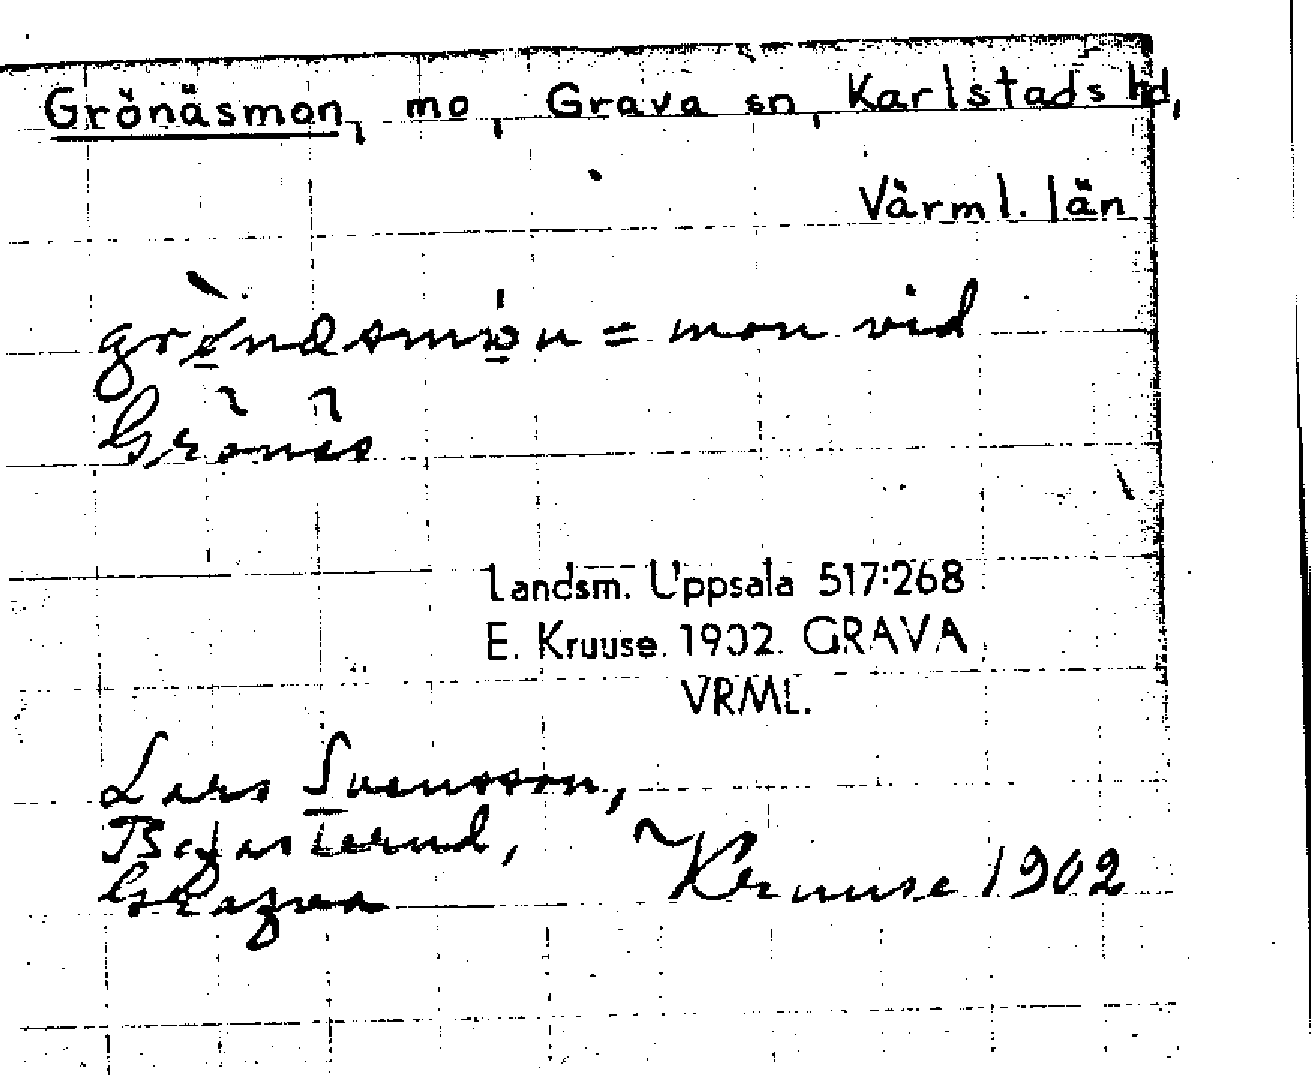 Grönäsmon, mo, Grava sn, Karlstads hd,
Värml. län
grø̀nasmøn = mon vid
Grönäs
Landsm. Uppsala 517:268
E. Kruuse. 1902. GRAVA
VRML.
Lars Svensson,
Kruuse 1902